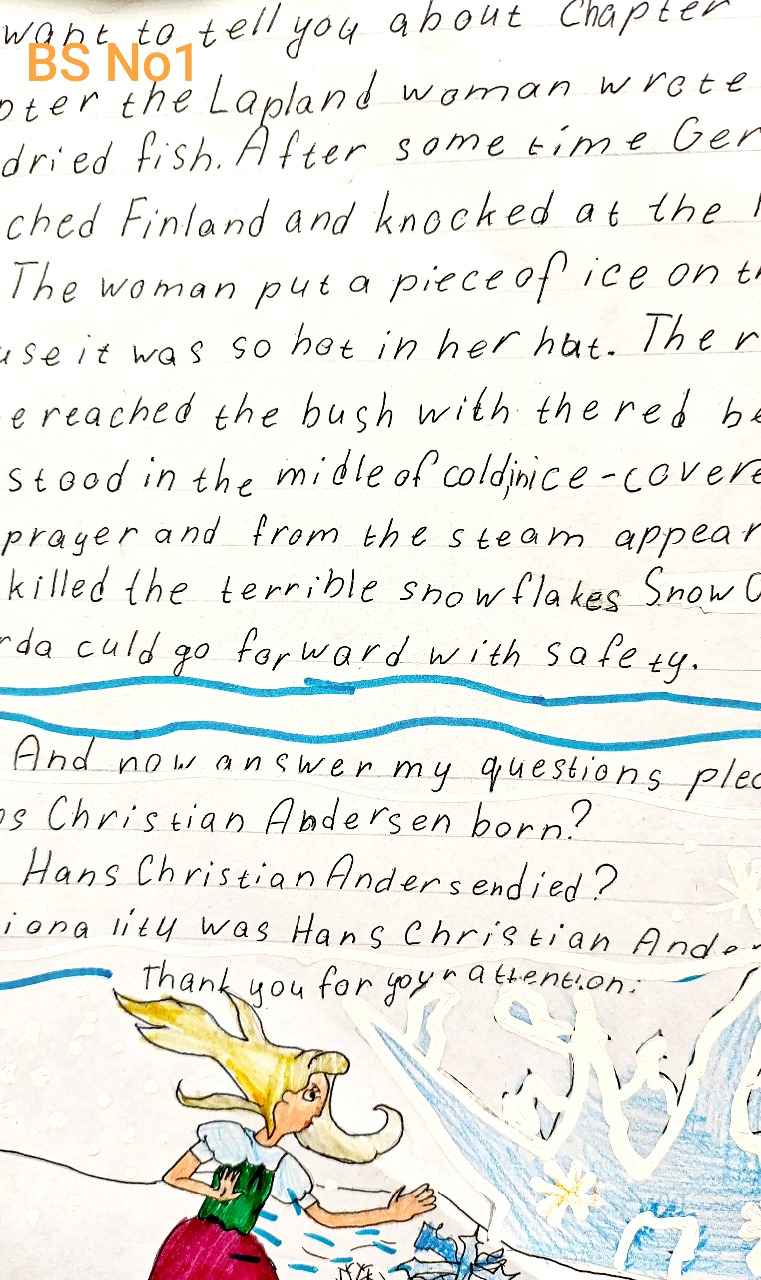 want to tell you about Chapter
BS No1
pter the Lapland woman wrote
dried fish. After some time Ger
ched Finland and knocked at the h
The woman put a piece of ice on th
use it was so hot in her hut. The r
e reached the bush with the red be
stood in the midle of cold, in ice-covere
prayer and from the steam appear
killed the terrible snowflakes Snow Q
rda culd go forward with safety.
And now answer my questions plea
as Christian Andersen born?
Hans Christian Andersen died?
ionality was Hans Christian Ander
Thank you for your attention.